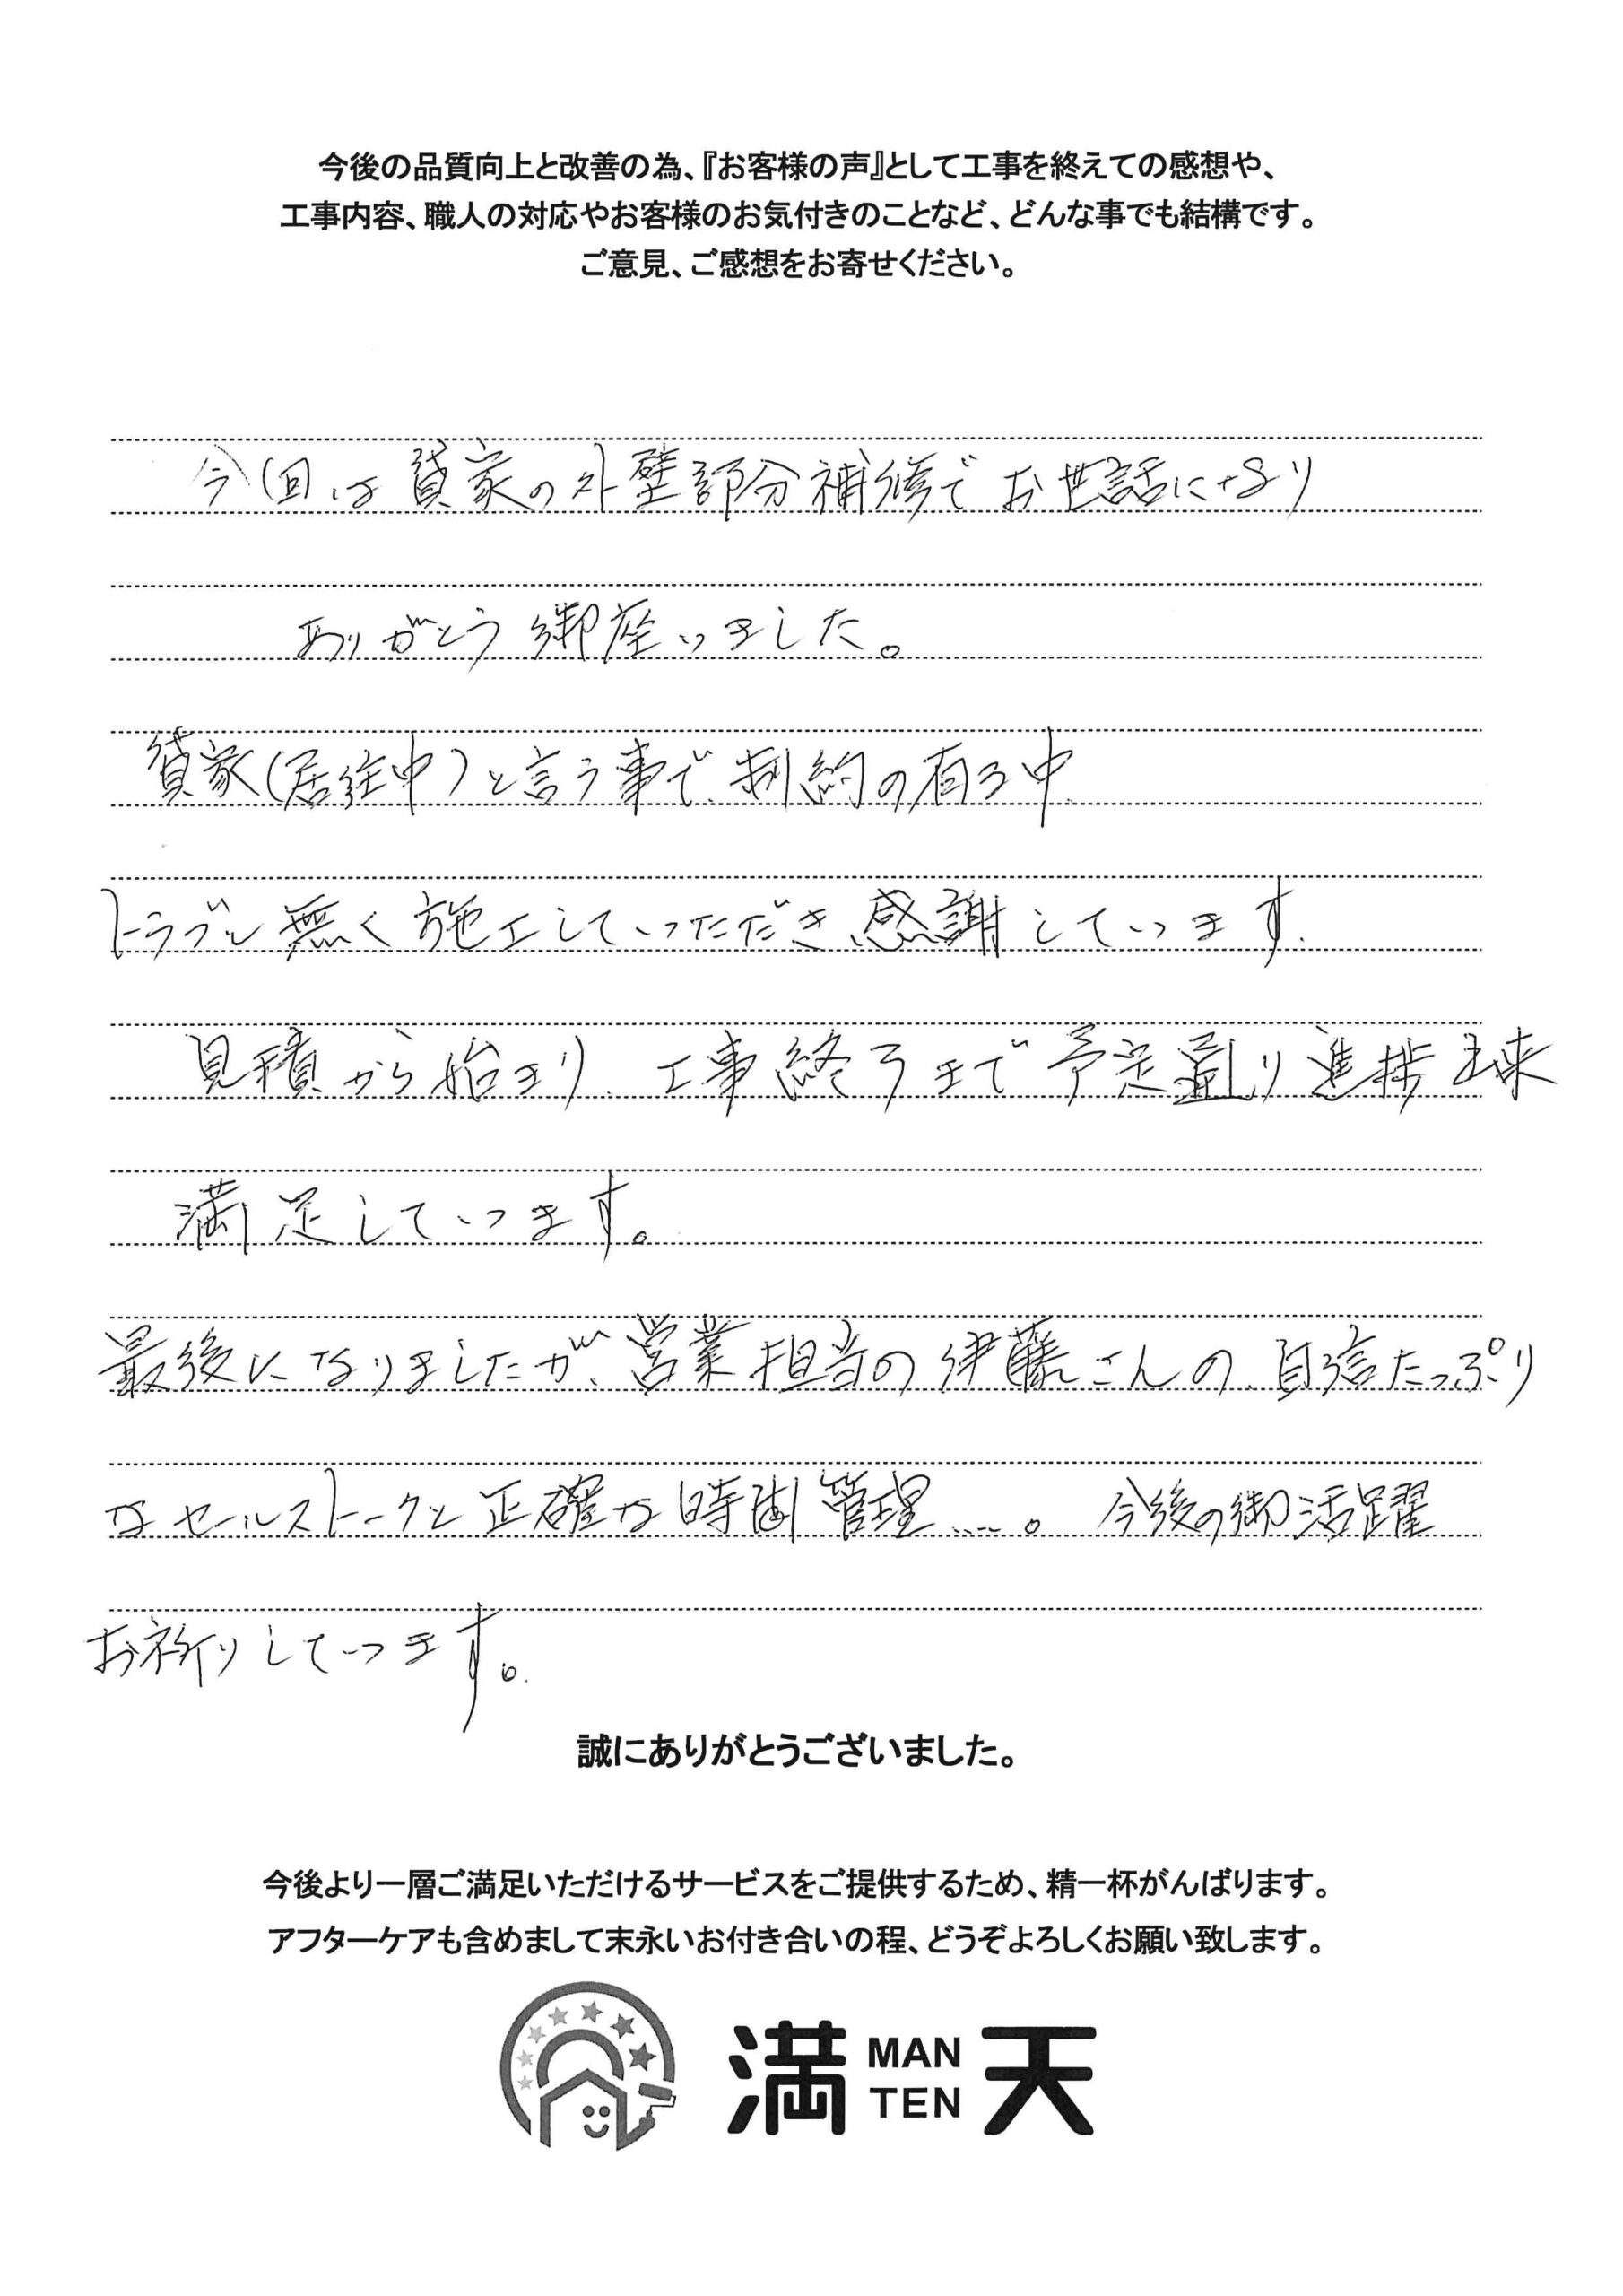 今後の品質向上と改善の為、『お客様の声』として工事を終えての感想や、
工事内容、職人の対応やお客様のお気付きのことなど、どんな事でも結構です。
ご意見、ご感想をお寄せください。
今回は貸家の外壁部分補修でお世話になり
ありがとう御座いました。
貸家(居住中)と言う事で、制約の有る中、
トラブル無く施工していただだき感謝しています。
見積から始まり、工事終了まで予定通り進捗出来
満足しています。
最後になりましたが、営業担当の伊藤さんの、自信たっぷり
なセールストークと正確な時間管理……。今後の御活躍
お祈りしています。
誠にありがとうございました。
今後より一層ご満足いただけるサービスをご提供するため、精一杯がんばります。
アフターケアも含めまして末永いお付き合いの程、どうぞよろしくお願い致します。
満 MAN TEN 天